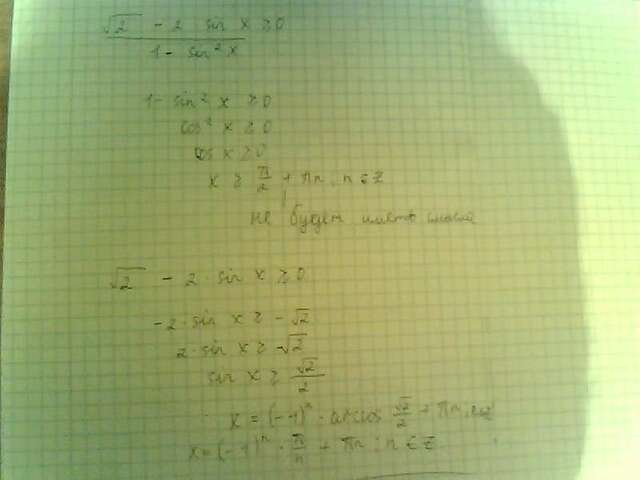 √2 - 2 sin x ≥ 0
1 - sin² x
1 - sin² x ≥ 0
cos² x ≥ 0
cos x ≥ 0
x ≥ π/2 + πn, n ∈ Z
не будет иметь смысл
√2 - 2 · sin x ≥ 0
-2 · sin x ≥ -√2
2 · sin x ≥ -√2
sin x ≥ √2/2
x = (-1)ⁿ · arccos √2/2 + πn, n∈Z
x = (-1)ⁿ · π/n + πn ; n ∈ Z